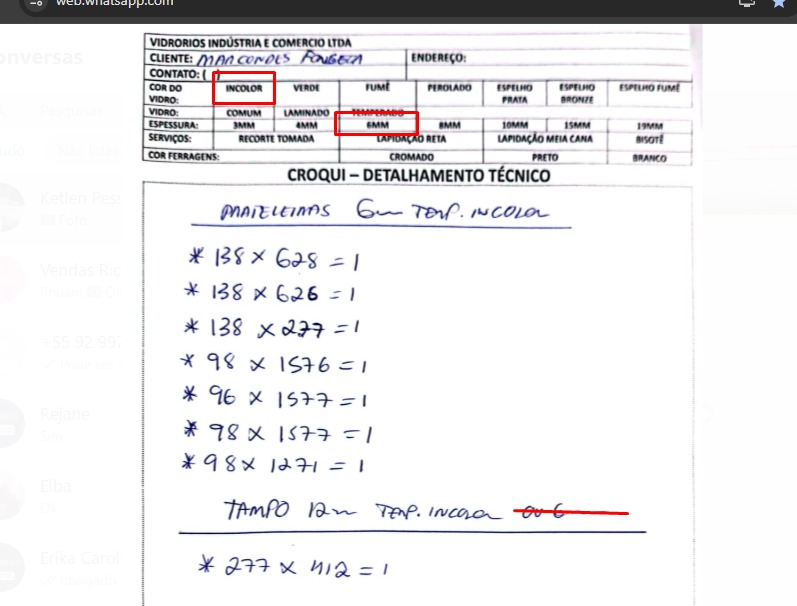 web.whatsapp.com
onversas
Pesquisar
Ketlen Pess
Foto
Vendas Ric
+55 92 997
Rejane
Sim
Elba
Ok
Erika Carol
obrigado
VIDRORIOS INDÚSTRIA E COMERCIO LTDA
CLIENTE: MARCONDES FONSECA ENDEREÇO:
CONTATO: ( )
COR DO VIDRO: INCOLOR VERDE FUMÊ PEROLADO ESPELHO PRATA ESPELHO BRONZE ESPELHO FUMÊ
VIDRO: COMUM LAMINADO TEMPERADO
ESPESSURA: 3MM 4MM 6MM 8MM 10MM 15MM 19MM
SERVIÇOS: RECORTE TOMADA LAPIDAÇÃO RETA LAPIDAÇÃO MEIA CANA BISOTÊ
COR FERRAGENS: CROMADO PRETO BRANCO
CROQUI – DETALHAMENTO TÉCNICO
PRATELEIRAS 6mm TEMP. INCOLOR
* 138 x 628 = 1
* 138 x 626 = 1
* 138 x 277 = 1
* 98 x 1576 = 1
* 96 x 1577 = 1
* 98 x 1577 = 1
* 98 x 1271 = 1
TAMPO 12mm TEMP. INCOLOR ou 6
* 277 x 412 = 1